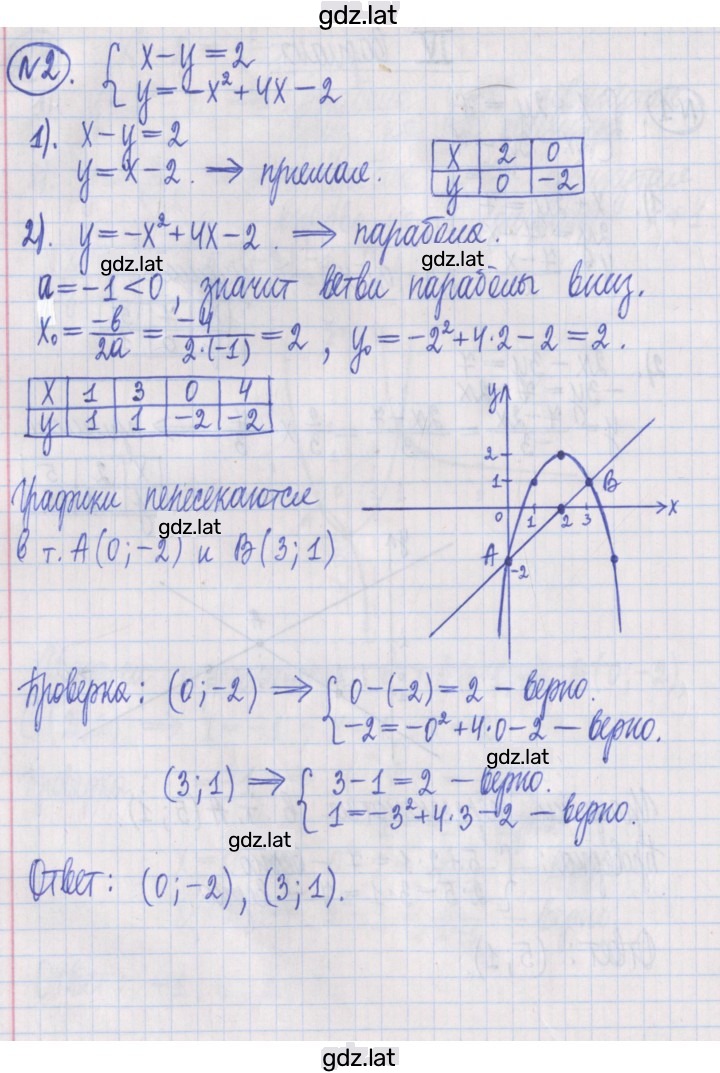 gdz.lat
№2. { x-y=2
y=-x²+4x-2
1). x-y=2
y=x-2. ⇒ прямая.
x 2 0
y 0 -2
2). y=-x²+4x-2. ⇒ парабола.
gdz.lat gdz.lat
a=-1<0, значит ветви параболы вниз.
x₀ = -b/2a = -4/2·(-1) = 2, y₀ = -2²+4·2-2=2.
x 1 3 0 4
y 1 1 -2 -2
y
2
1
0 1 2 3 x
A
-2
B
Графики пересекаются
gdz.lat
в т. A(0;-2) и B(3;1)
Проверка: (0;-2) ⇒ { 0-(-2)=2 - верно.
-2=-0²+4·0-2 - верно.
gdz.lat
(3;1) ⇒ { 3-1=2 - верно.
1=-3²+4·3-2 - верно.
gdz.lat
Ответ: (0;-2), (3;1).
gdz.lat